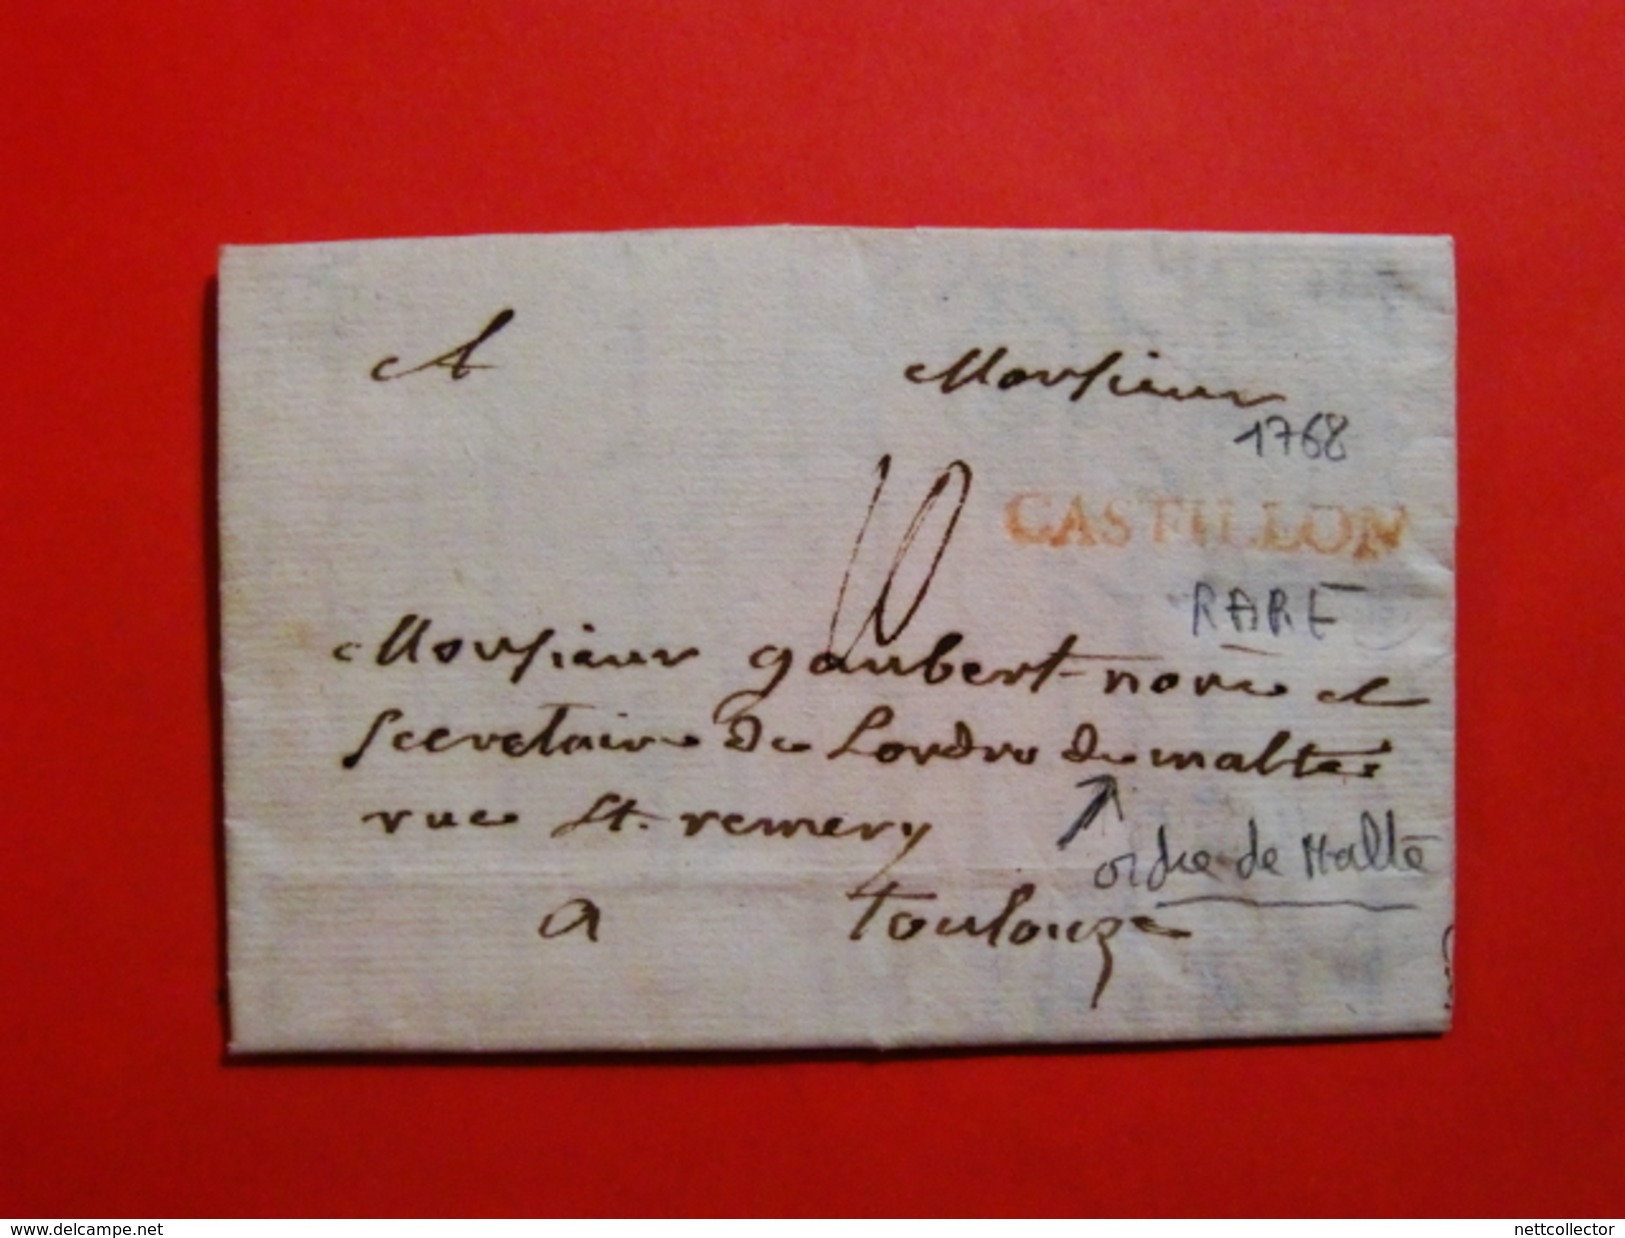 A Monsieur
1768
10
CASTILLON
RARE
Monsieur gaubert nore et
secretaire de Lordre de malte
rue St. remery
ordre de Malte
a Toulouze
www.delcampe.net
nettcollector